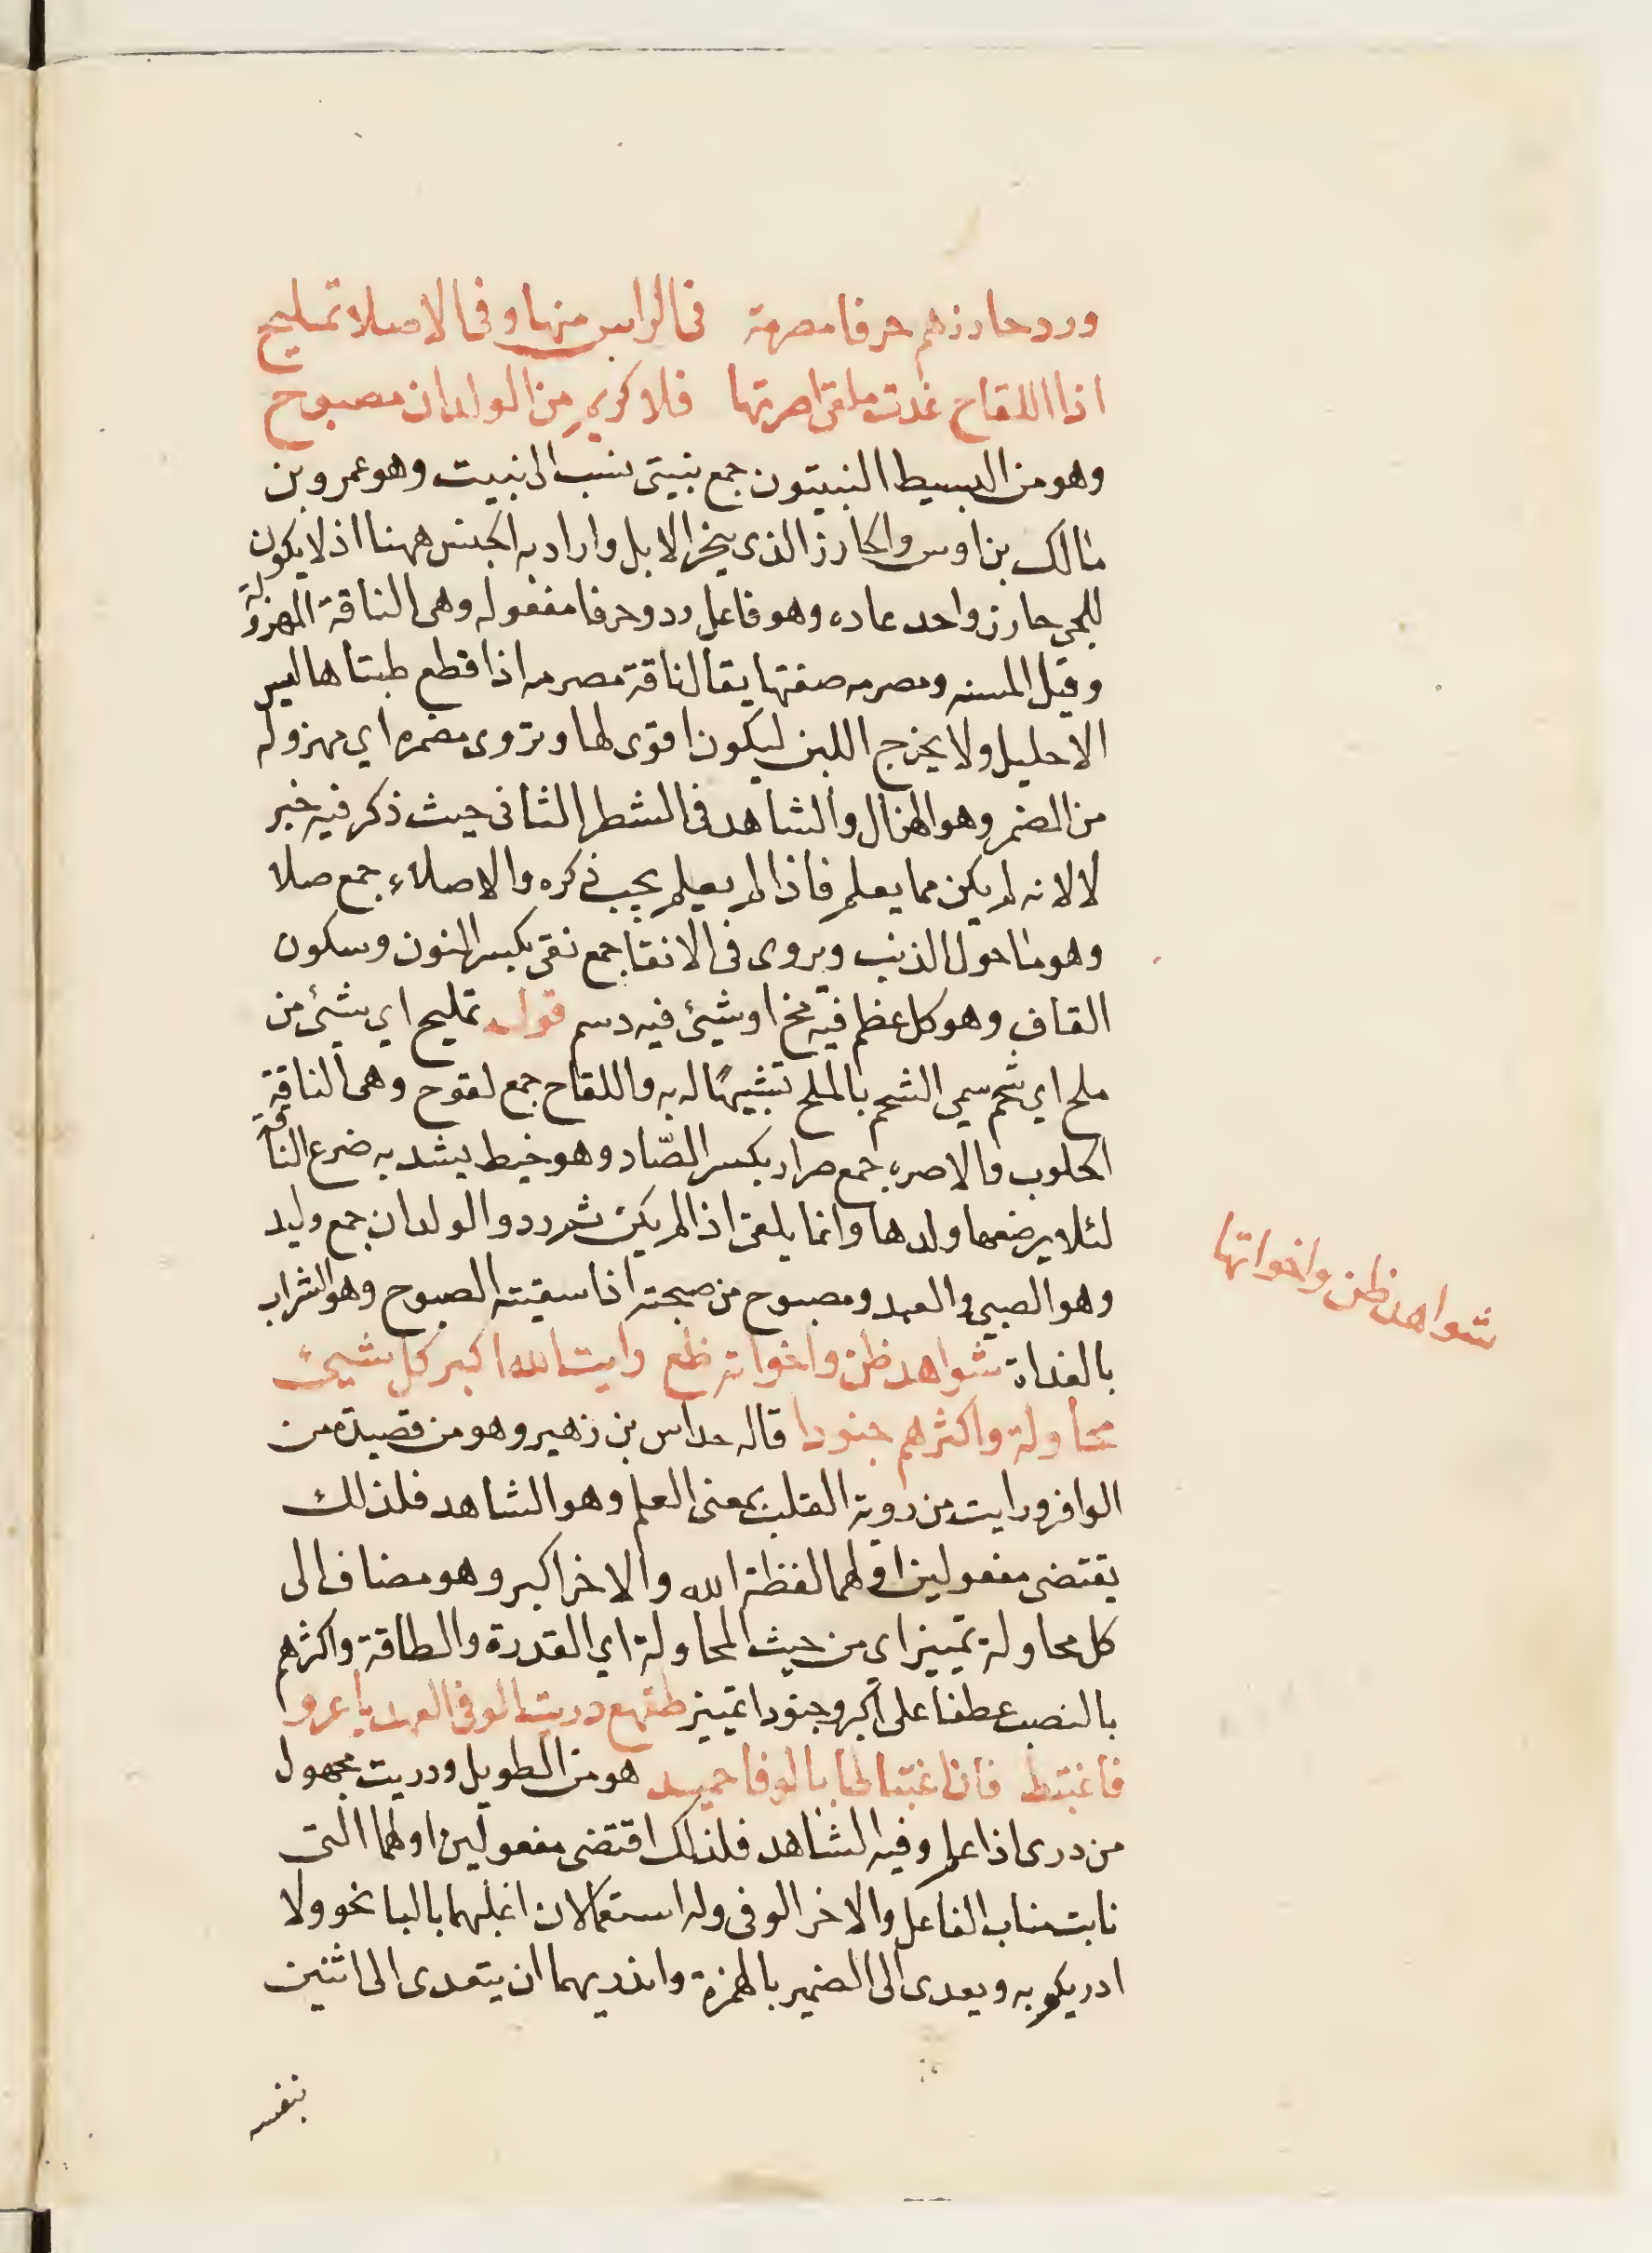 ورد حارزهم حرفا مصرمة في الراس منها وفي الاصلا تمليح
اذا اللقاح غدت ملقى اصرتها فلا كريم من الولدان مصبوح
وهو من البسيط النبيتون جمع نبيتي نسب الى نبيت وهو عمرو بن
مالك بن اوس والحارز الذي ينحر الابل واراد به الجنس ههنا اذ لا يكون
للحي حارز واحد عاده وهو فاعل رد وحرفا مفعوله وهى الناقة المهزولة
وقيل المسنه ومصرمه صفتها يقال ناقة مصرمه اذا قطع طبتاها ليس
الاحليل ولا يخرج اللبن ليكون اقوى لها وتروى مضمره اي مهزوله
من الضمر وهو الهزال والشاهد في الشطر الثاني حيث ذكر فيه خبر
لا لانه لم يكن مما يعلم فاذا لم يعلم يجب ذكره والاصلاء جمع صلا
وهو ما حول الذنب ويروى في الانقا جمع نقي بكسر النون وسكون
القاف وهو كل عظم فيه مخ او شيئ فيه دسم قوله تمليح اي شيئ من
ملح اي شحم سمي الشحم بالملح تشبيهًا له به واللقاح جمع لقوح وهى الناقة
الحلوب والاصره جمع صرار بكسر الصّاد وهو خيط يشد به ضرع الناقة
لئلا يرضعها ولدها وانما يلقى اذا لم يكن ثم در والولدان جمع وليد
وهو الصبي والعبد ومصبوح من صبحته اذا سقيته الصبوح وهو الشراب
بالغداة شواهد ظن واخواته ظع رايت الله اكبر كل شيئ
محاولة واكثرهم جنودا قاله حداس بن زهير وهو من قصيدة من
الوافر ورايت من روية القلب بمعنى العلم وهو الشاهد فلذلك
يقتضى مفعولين اولهما لفظة الله والاخر اكبر وهو مضاف الى
كل محاولة تمييز اي من حيث المحاولة اي القدرة والطاقة واكثرهم
بالنصب عطفا على اكبر وجنودا تمييز طقهع دريت الوفى العهد يا عرو
فاغتبط فان اغتباطا بالوفا حميد هو من الطويل ودريت مجهول
من درى اذا علم وفيه الشاهد فلذلك اقتضى مفعولين اولهما التى
نابت مناب الفاعل والاخر الوفى وله استعمالان اغلبهما بالبا نحو ولا
ادريكم به ويعدى الى الضمير بالهمزة واندريهما ان يتعدى الى اثنين
بنفسه
شواهد ظن واخواتها